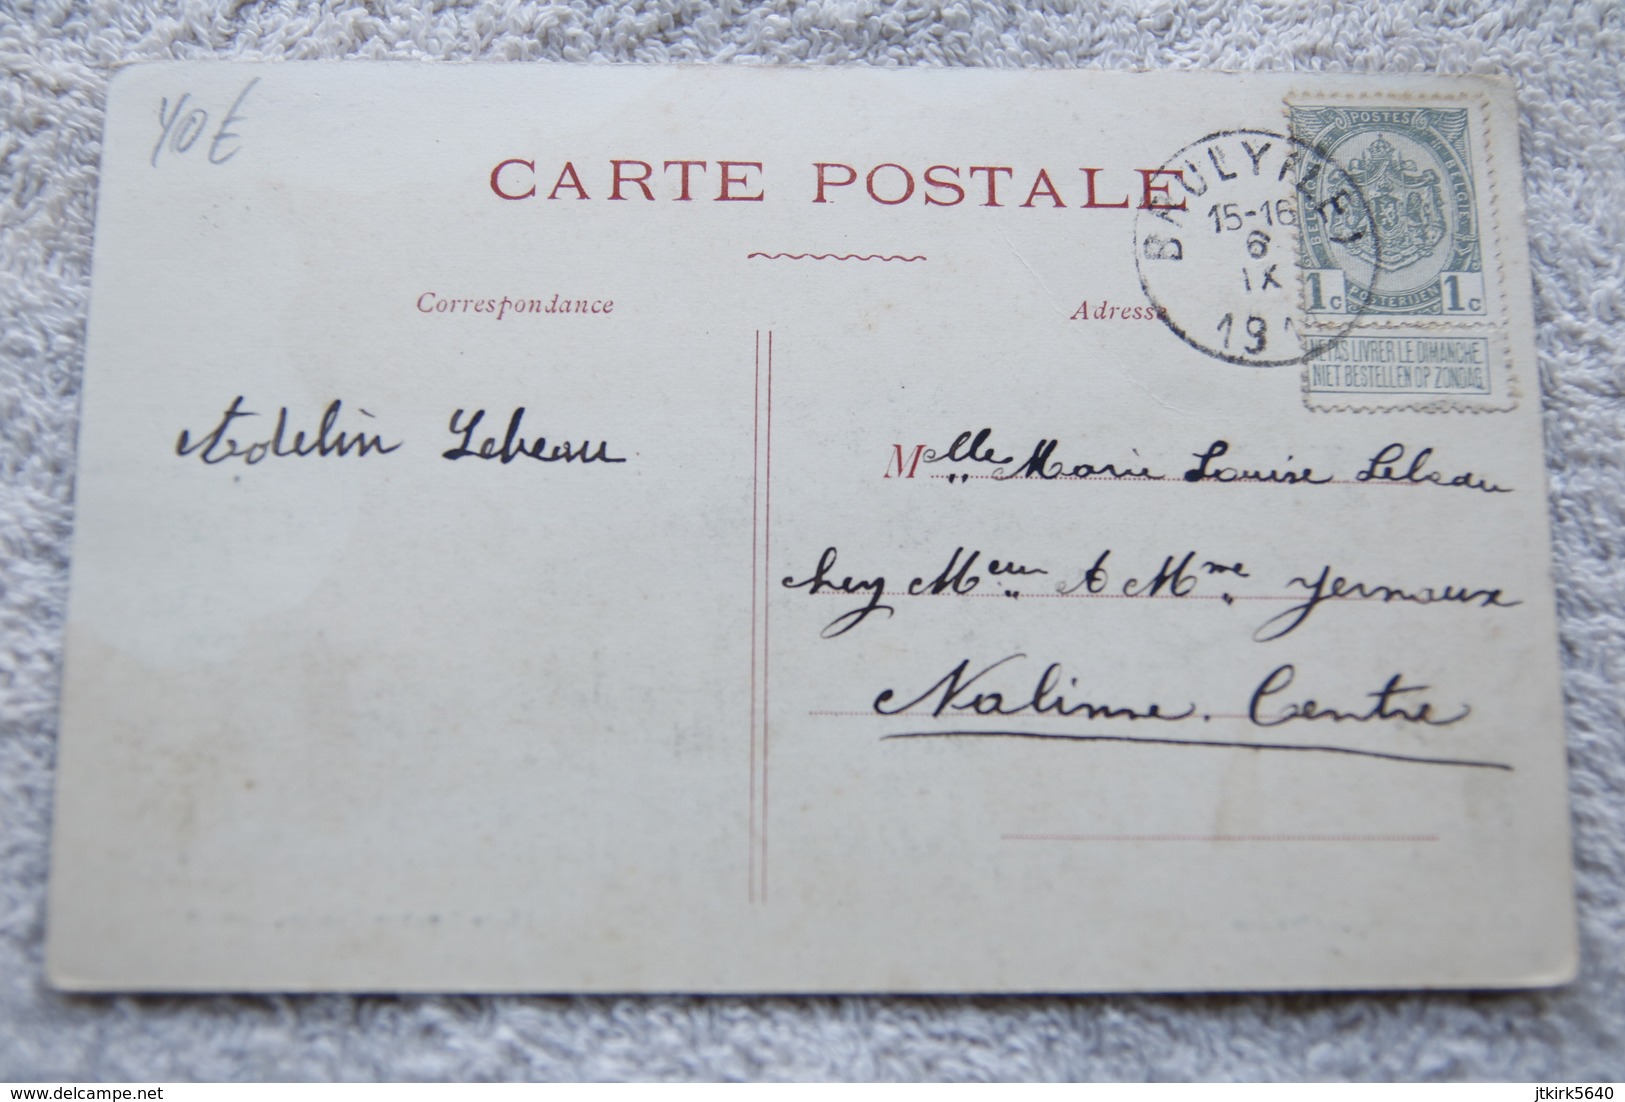 40€
CARTE POSTALE
Correspondance
Adresse
15-16
6
IX
19
POSTES
BELGIQUE
BELGIË
1c POSTERIJEN 1c
NE PAS LIVRER LE DIMANCHE
NIET BESTELLEN OP ZONDAG
Adelin Lebeau
Melle Marie Louise Lebeau
chez Meur et Mme Yernaux
Nalinne. Centre
www.delcampe.net
jtkirk5640